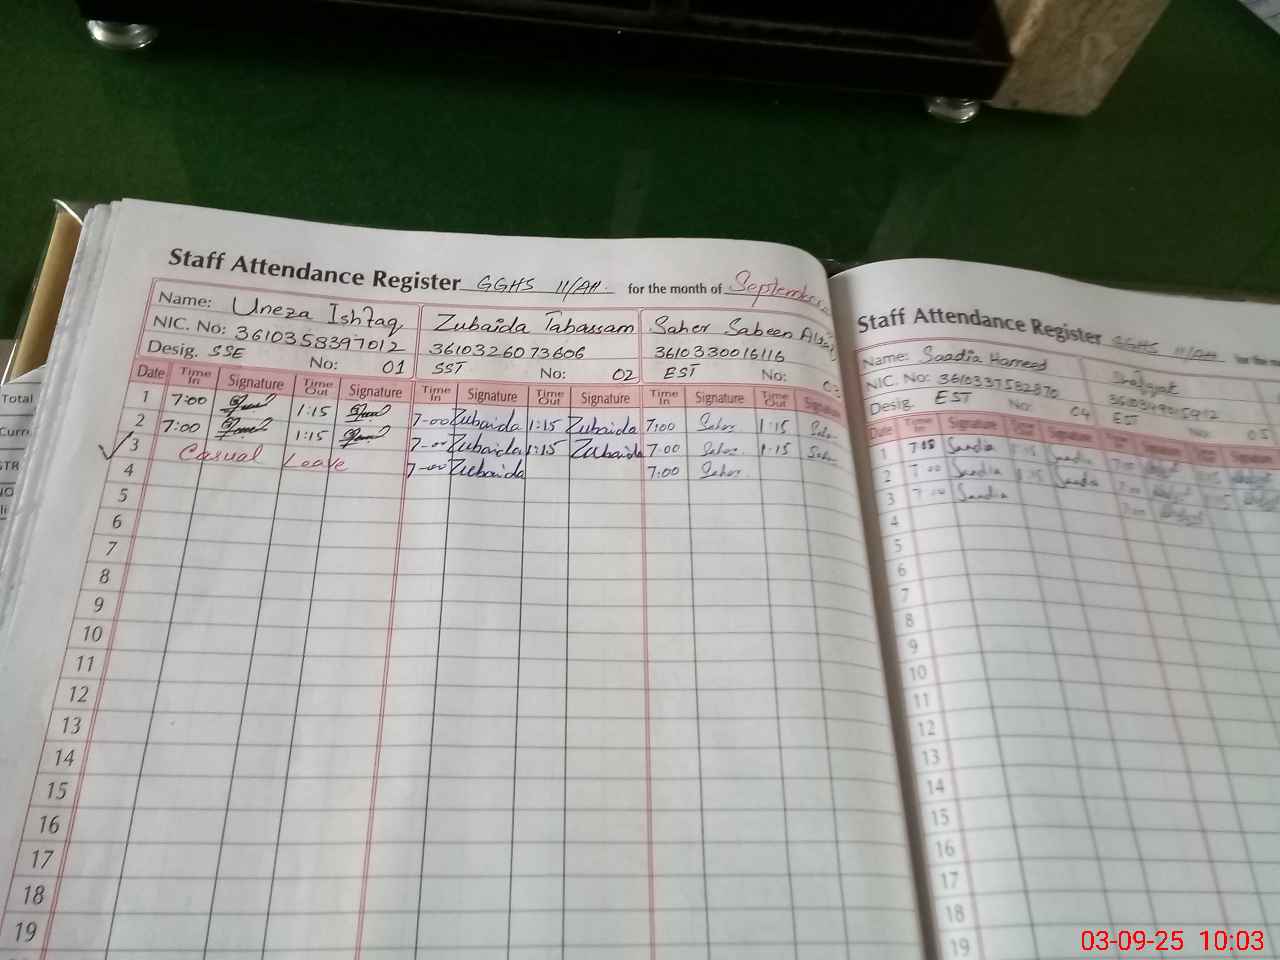 Staff Attendance Register GGHS 11/AH. for the month of September
Name: Uneza Ishfaq Zubaida Tabassam Saher Sabeen
NIC. No: 3610358397012 3610326073606 3610330016116
Desig. SSE No: 01 SST No: 02 EST No: 03
Date Time In Signature Time Out Signature Time In Signature Time Out Signature Time In Signature Time Out Signature
1 7:00 1:15 7-00 Zubaida 1:15 Zubaida 7:00 Saher 1:15 Saher
2 7:00 1:15 7-00 Zubaida 1:15 Zubaida 7:00 Saher 1:15 Saher
3 Casual Leave 7-00 Zubaida 7:00 Saher
4
5
6
7
8
9
10
11
12
13
14
15
16
17
18
19
Staff Attendance Register GGHS 11/AH for the
Name: Saadia Hameed
NIC. No: 3610337582870
Desig. EST No: 04 EST No: 05
Date Time In Signature Signature Signature Signature
1 7:00 Saadia 1:15 Saadia
2 7:00 Saadia 1:15 Saadia 7:00
3 7:00 Saadia 7:00
4
5
6
7
8
9
10
11
12
13
14
15
16
17
18
19
Total
Curr
STR
03-09-25 10:03